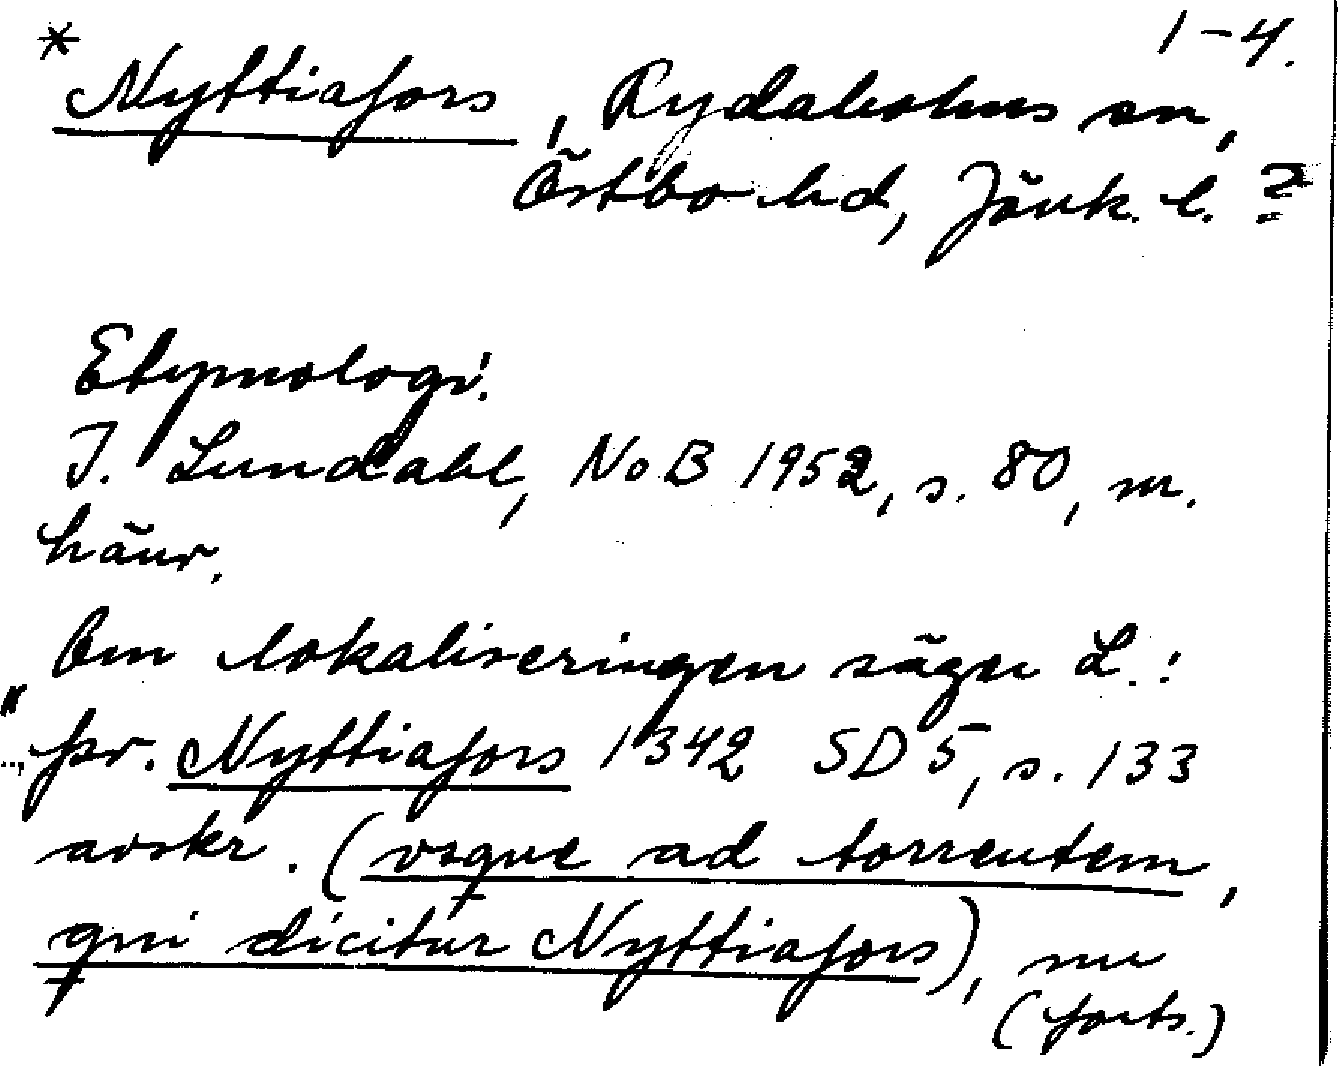 1-4.
* Nyttiafors, Rydaholms sn,
Östbo hd, Jönk. l. ?
Etymologi:
I. Lundahl, NoB 1952, s. 80, m.
hänv.
Om lokaliseringen säger L.:
"..., þr. Nyttiafors 1342 SD 5, s. 133
avskr. (vsque ad torrentem,
qui dicitur Nyttiafors), nu
(forts.)